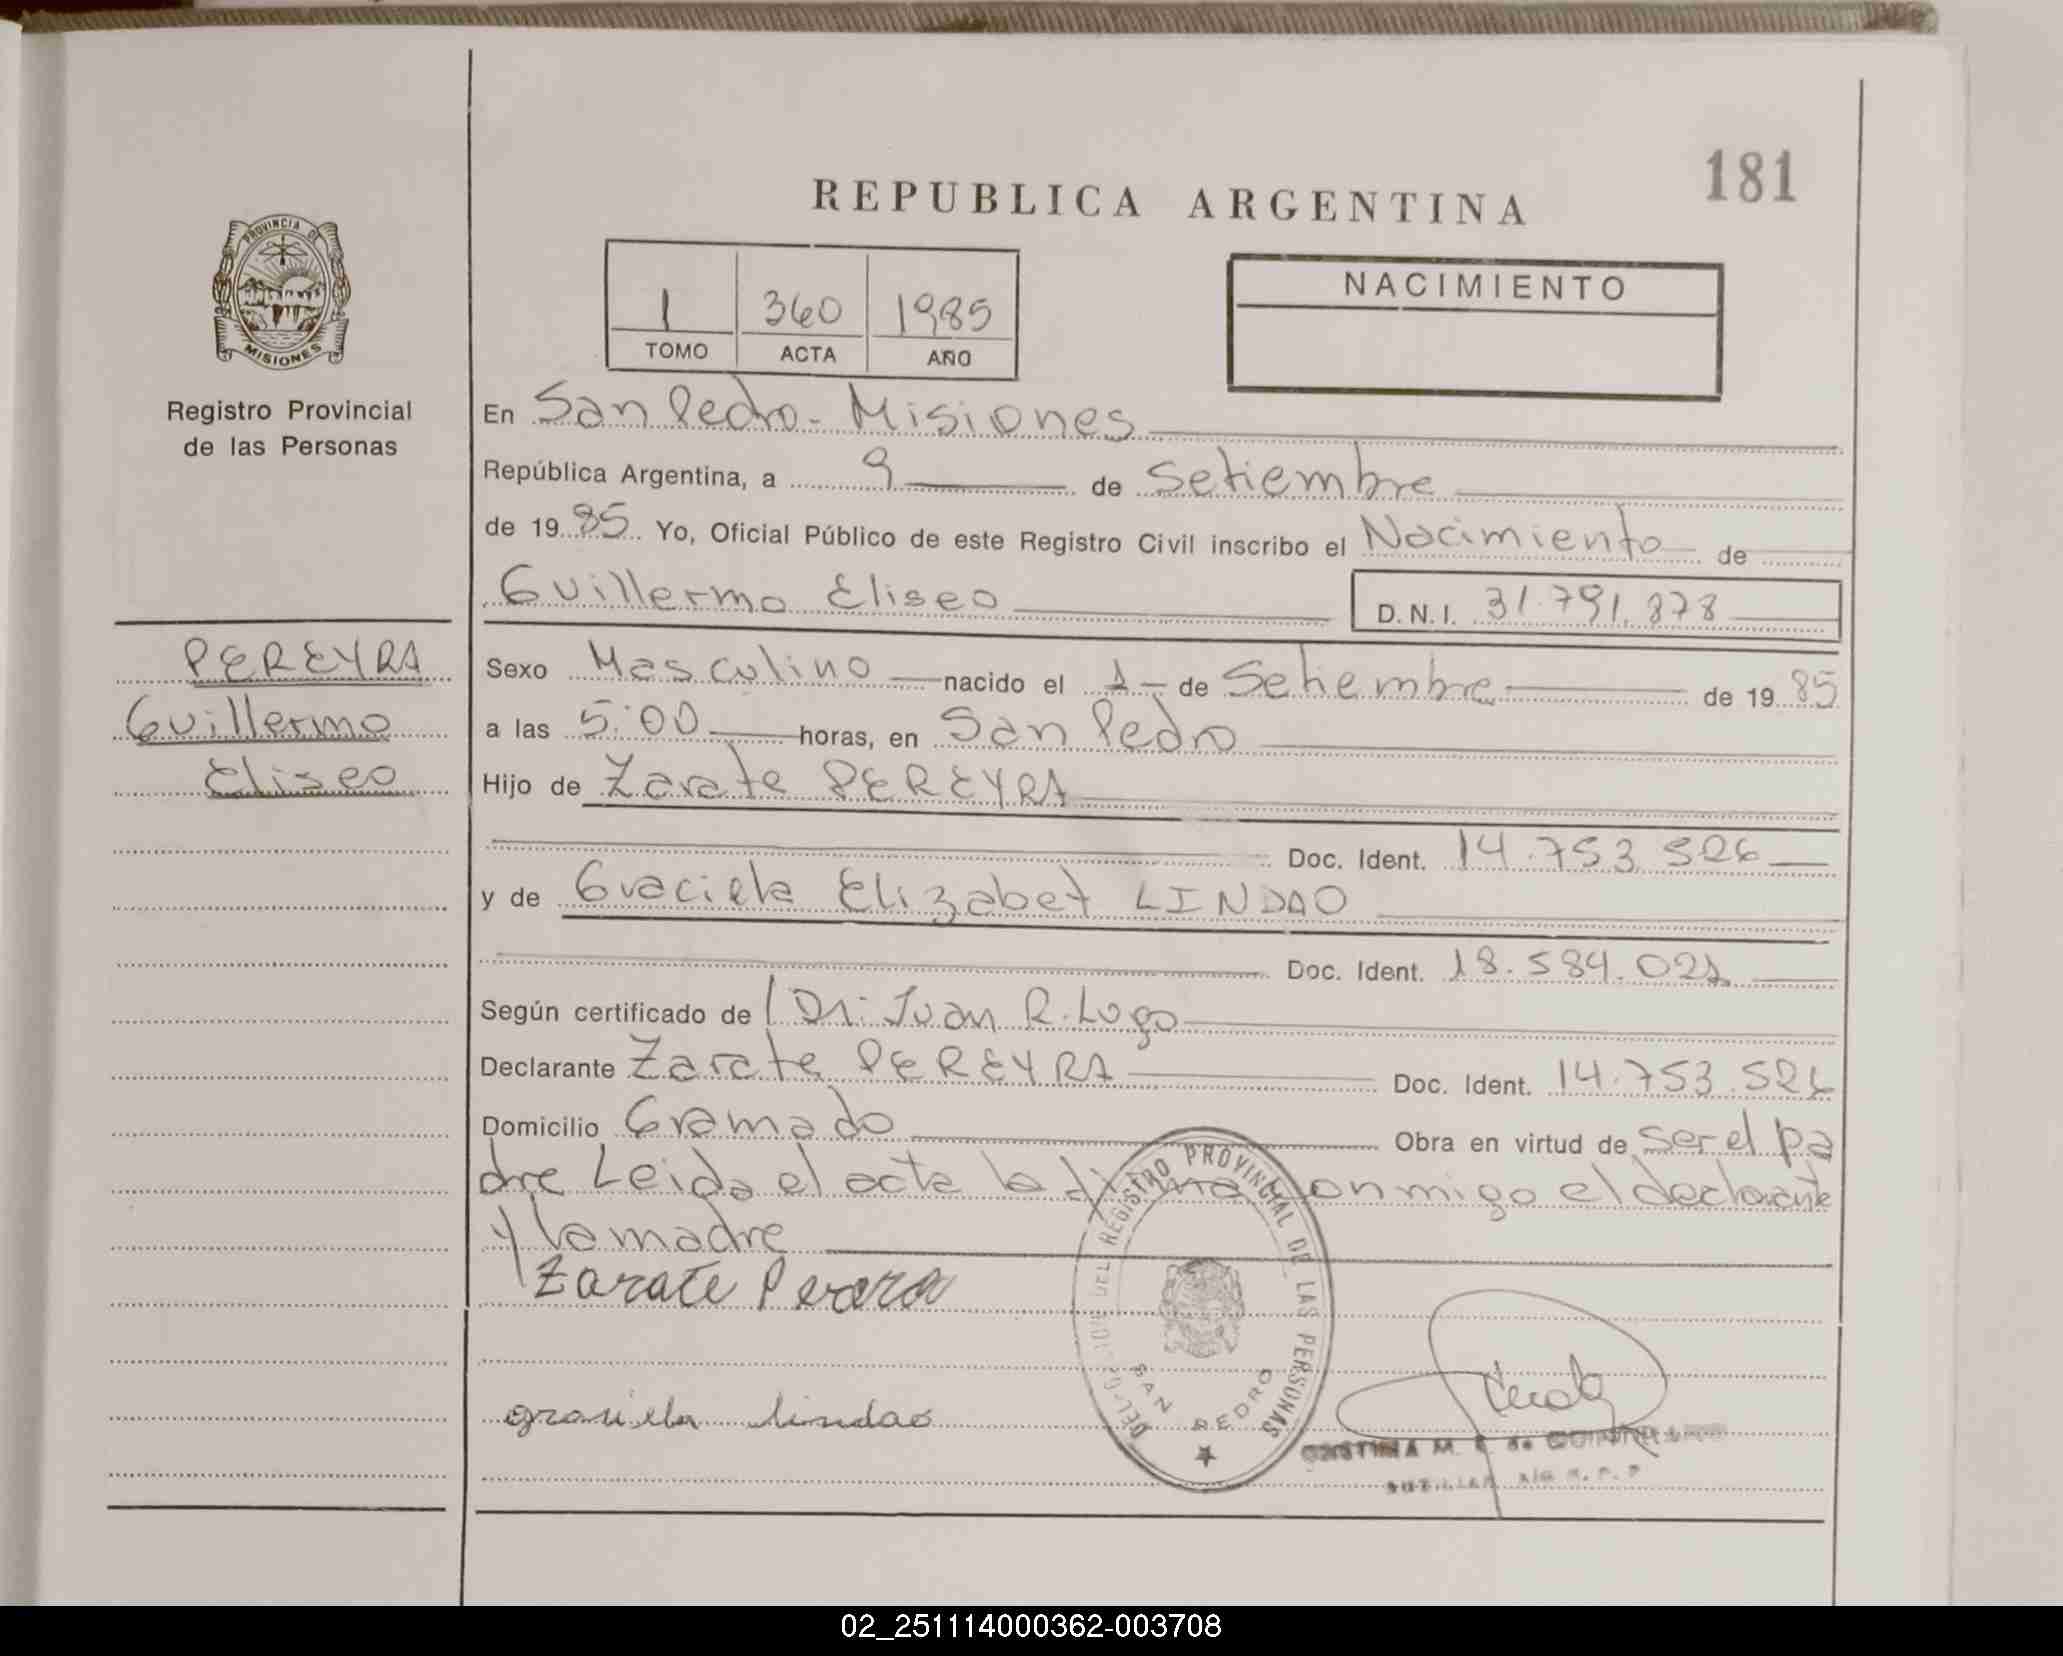 181
REPUBLICA ARGENTINA
PROVINCIA DE
MISIONES
Registro Provincial
de las Personas
1 360 1985
TOMO ACTA AÑO
NACIMIENTO
En San Pedro - Misiones
República Argentina, a 9 de Setiembre
de 1985 Yo, Oficial Público de este Registro Civil inscribo el Nacimiento de
Guillermo Eliseo D.N.I. 31.791.878
PEREYRA
Guillermo
Eliseo
Sexo Masculino nacido el 1 - de Setiembre de 1985
a las 5:00 horas, en San Pedro
Hijo de Zarate PEREYRA
Doc. Ident. 14.753.526
y de Graciela Elizabet LINDAO
Doc. Ident. 18.584.021
Según certificado de Dr. Juan R. Lugo
Declarante Zarate PEREYRA Doc. Ident. 14.753.526
Domicilio Gramado Obra en virtud de ser el pa
dre Leida el acta la firma conmigo el declarante
y la madre
Zarate
graciela lindao
DEL REGISTRO PROVINCIAL DE LAS PERSONAS
SAN PEDRO
CRISTINA M. de
AUXILIAR
02_251114000362-003708